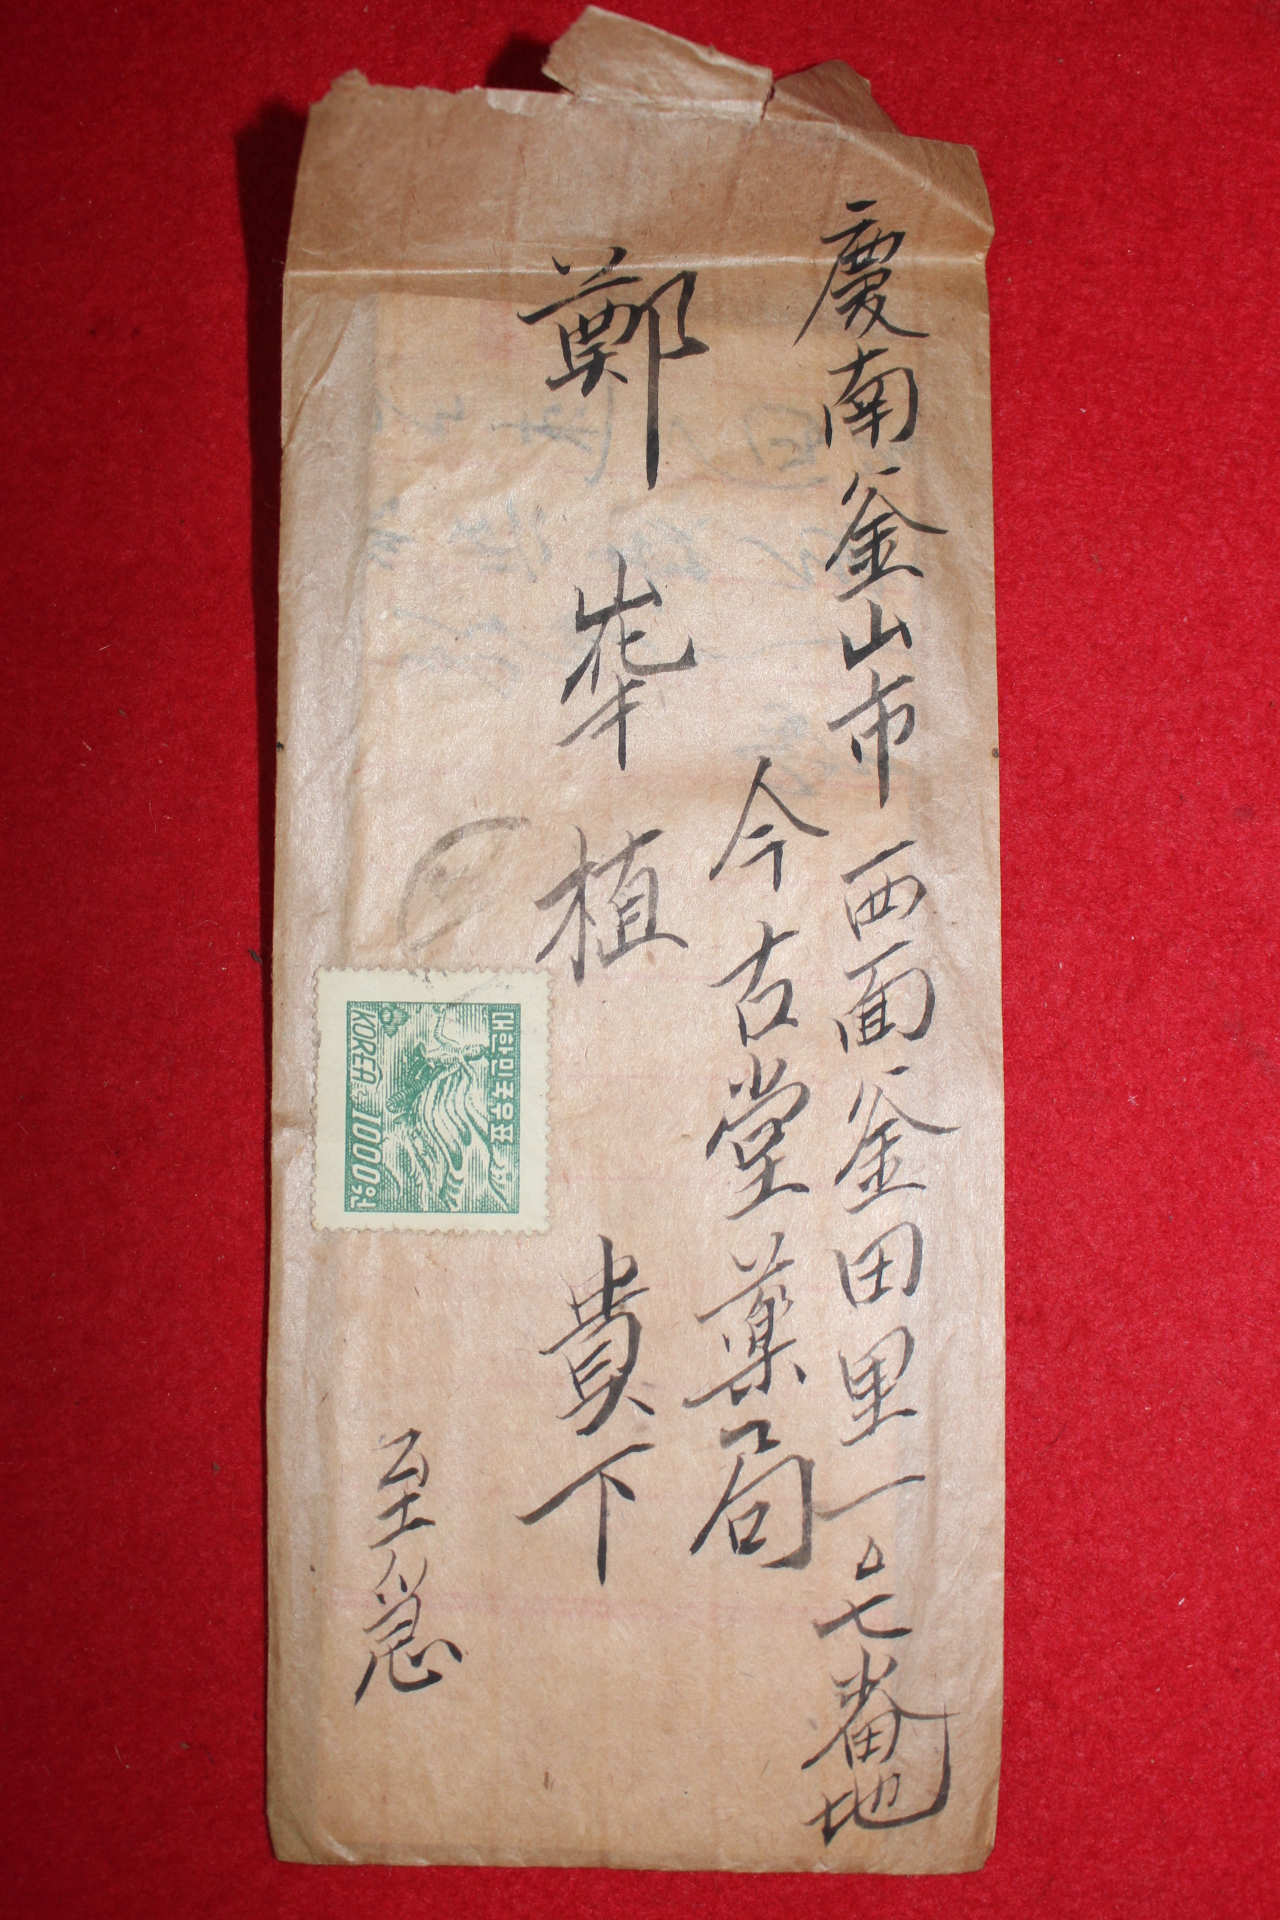 慶南釜山市西面釜田里一〇七番地
今古堂藥局
鄭 華植 貴下
至急
대한민국우표
KOREA 1000원